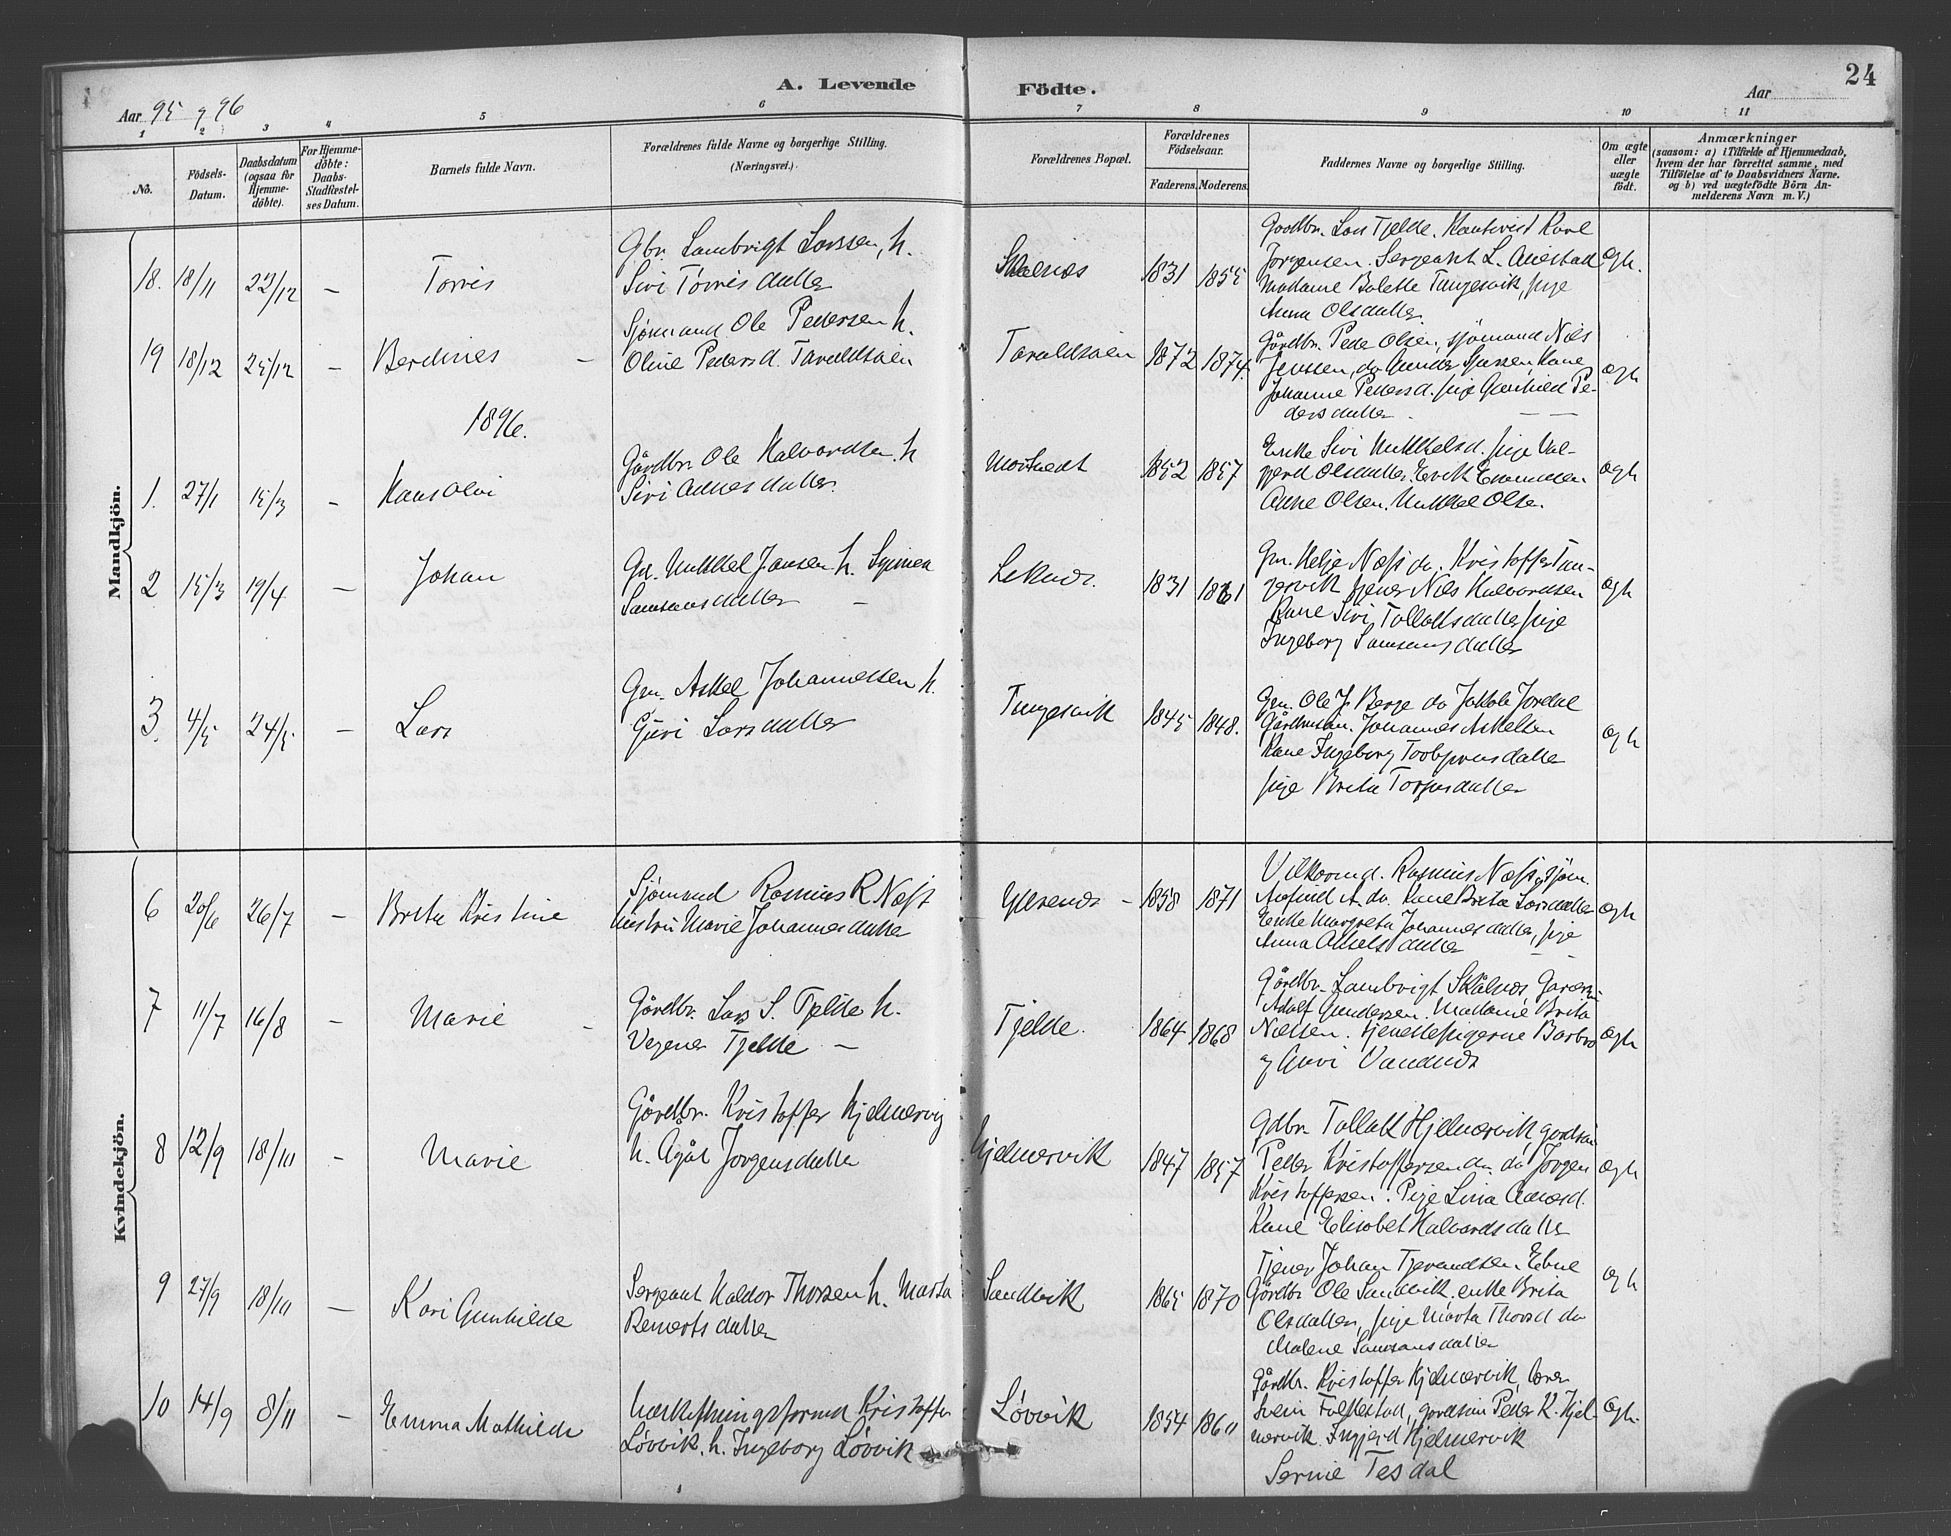 A. Levende Födte.
24
Aar 95 og 96
Aar
1 2 3 4 5 6 7 8 9 10 11
No.
Födsels-
Datum.
Daabsdatum
(ogsaa for
Hjemme-
döbte).
For Hjemme-
döbte:
Daabs-
Stadfæstel-
ses Datum.
Barnets fulde Navn.
Forældrenes fulde Navne og borgerlige Stilling.
(Næringsvei.)
Forældrenes Bopæl.
Forældrenes
Födselsaar.
Faderens. Moderens.
Faddernes Navne og borgerlige Stilling.
Om ægte
eller
uægte
födt.
Anmærkninger
(saasom: a) i Tilfælde af Hjemmedaab,
hvem der har forrettet samme, med
Tilföielse af to Daabsvidners Navne.
og b) ved uægtefödte Börn An-
melderens Navn m. V.)
Mandkjön.
18. 18/11 22/12 – Torris
Gbr. Lambrigt Larssen, h.
Sivi Tørrisdatter
Skaalnæs 1831 1855
Gaardbr. Lars Tjelde.
Jørgensen. Sergeant L.
Madame Bolette Tungesvik, pige
Anna Olsdatter
ægh.
19 18/12 25/12 – Berdines –
Sjømand Ole Pedersen h.
Oline Pedersd. Taraldsøien
Taraldsøien 1872 1874.
Gårdbr. Peder Olsen, sjømand Nils
Jenssen, do Gunder Kone
Johanne Pedersd. pige Gunhild Pe-
dersdatter
ægh
1896.
1. 27/1 15/3 – Hans Olai
Gårdbr. Ole Halvardsen h
Sivi Adnesdatter.
1852 1857
Enke Sivi Mikkelsd. pige Val-
gjerd Olsdatter. Erik
Olsen. Mikkel Olsen.
ægh
2 15/3 19/4 – Johan
Gm. Mikkel Jansen h. Synnea
Samsonsdatter –
Leknæs. 1831 1861
Gm. Helje Næss do. Kristoffer Tun-
gesvik tjener Nils Halvardsen
Kone Sivi Tollaksdatter pige
Ingeborg Samsonsdatter
ægh
3. 4/5 24/5 – Lars
Gm. Askel Johannessen h.
Guri Larsdatter
Tungesvik 1845 1848.
Gm. Ole J. Berge do Jakob Jordal
Johannes Askelsen
Kone Ingeborg Torbjørnsdatter
pige Brita Torgersdatter
ægh
Kvindekjön.
6 20/6 26/7 – Brita Kristine
Sjømand Rasmus R Næss
hustru Marie Johannesdatter
– 1858 1871
Rasmus Næss, sjøm.
do. Kone Brita Larsdatter
Enke Margreta Johannesdatter, pige
Anna Askelsdatter
ægh
7 11/7 16/8 – Marie –
Gårdbr. Lars S. Tjelde h.
Tjelde –
Tjelde. 1864 1868
Gårdbr. Lambrigt Skålnæs,
Adolf Gundersen. Madame Brita
Nielsen. tjenestepigerne Barbro
og Guri Vandnæs
ægh
8 12/9 18/10 – Marie
Gårdbr. Kristoffer Hjelmervig
h. Agåt Jørgensdatter
Hjelmervik 1847 1857
Gdbr. Tollak Hjelmervik gårdsøn
Peder Kristoffersen do. do Jørgen
Kristoffersen. Pige Lina
Kone Elisabet Halvardsdatter
ægh
9 27/9 18/10 – Kari Gunhilde
Sergeant Haldor Thorsen h. Marta
Reinertsdatter
Sandvik 1865 1870
Tjener Johan Ebne
Gårdbr Ole Sandvik, enke Brita
Olsdatter, pige Marta Thorsd do
Malene Samsonsdatter
ægh
10 14/9 8/11 – Emma Mathilde
Kristoffer
Løvvik. h. Ingeborg Løvvik
Løvvik 1854 1860
Gårdbr. Kristoffer Hjelmervik, lærer
Svein Folkestad, gårdsøn Peder K. Hjel-
mervik. Ingjerd Hjelmervik
Serine Tesdal
ægh.